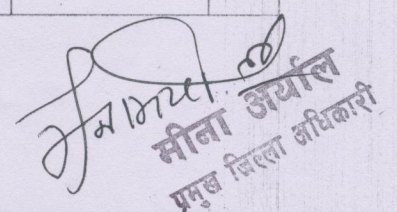 मीना अर्याल
प्रमुख जिल्ला अधिकारी